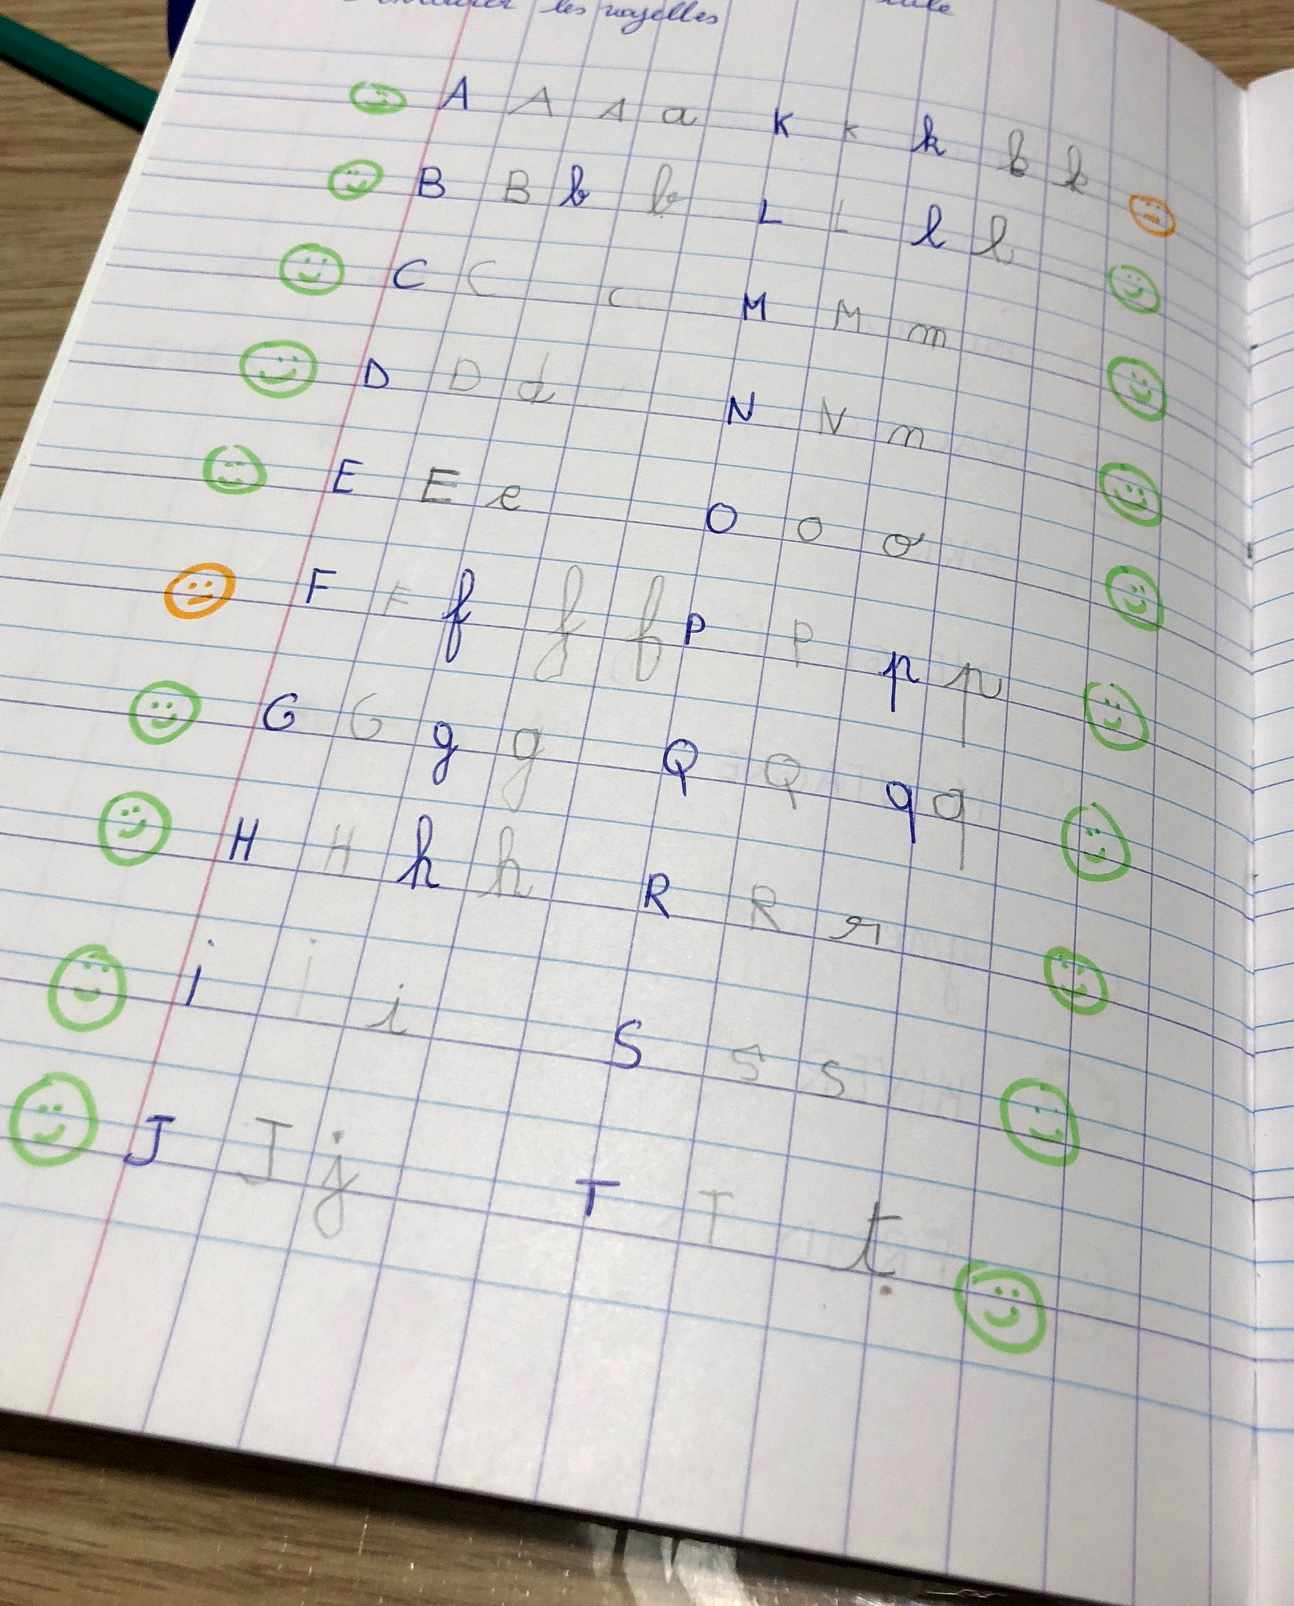 les voyelles
A A A a K k k k k
B B b b L L l l
C C c M M m
D D d N N n
E E e O o o
F F f f f P P p p
G G g g Q Q q q
H H h h R R r
i i i S s s
J J j T T t